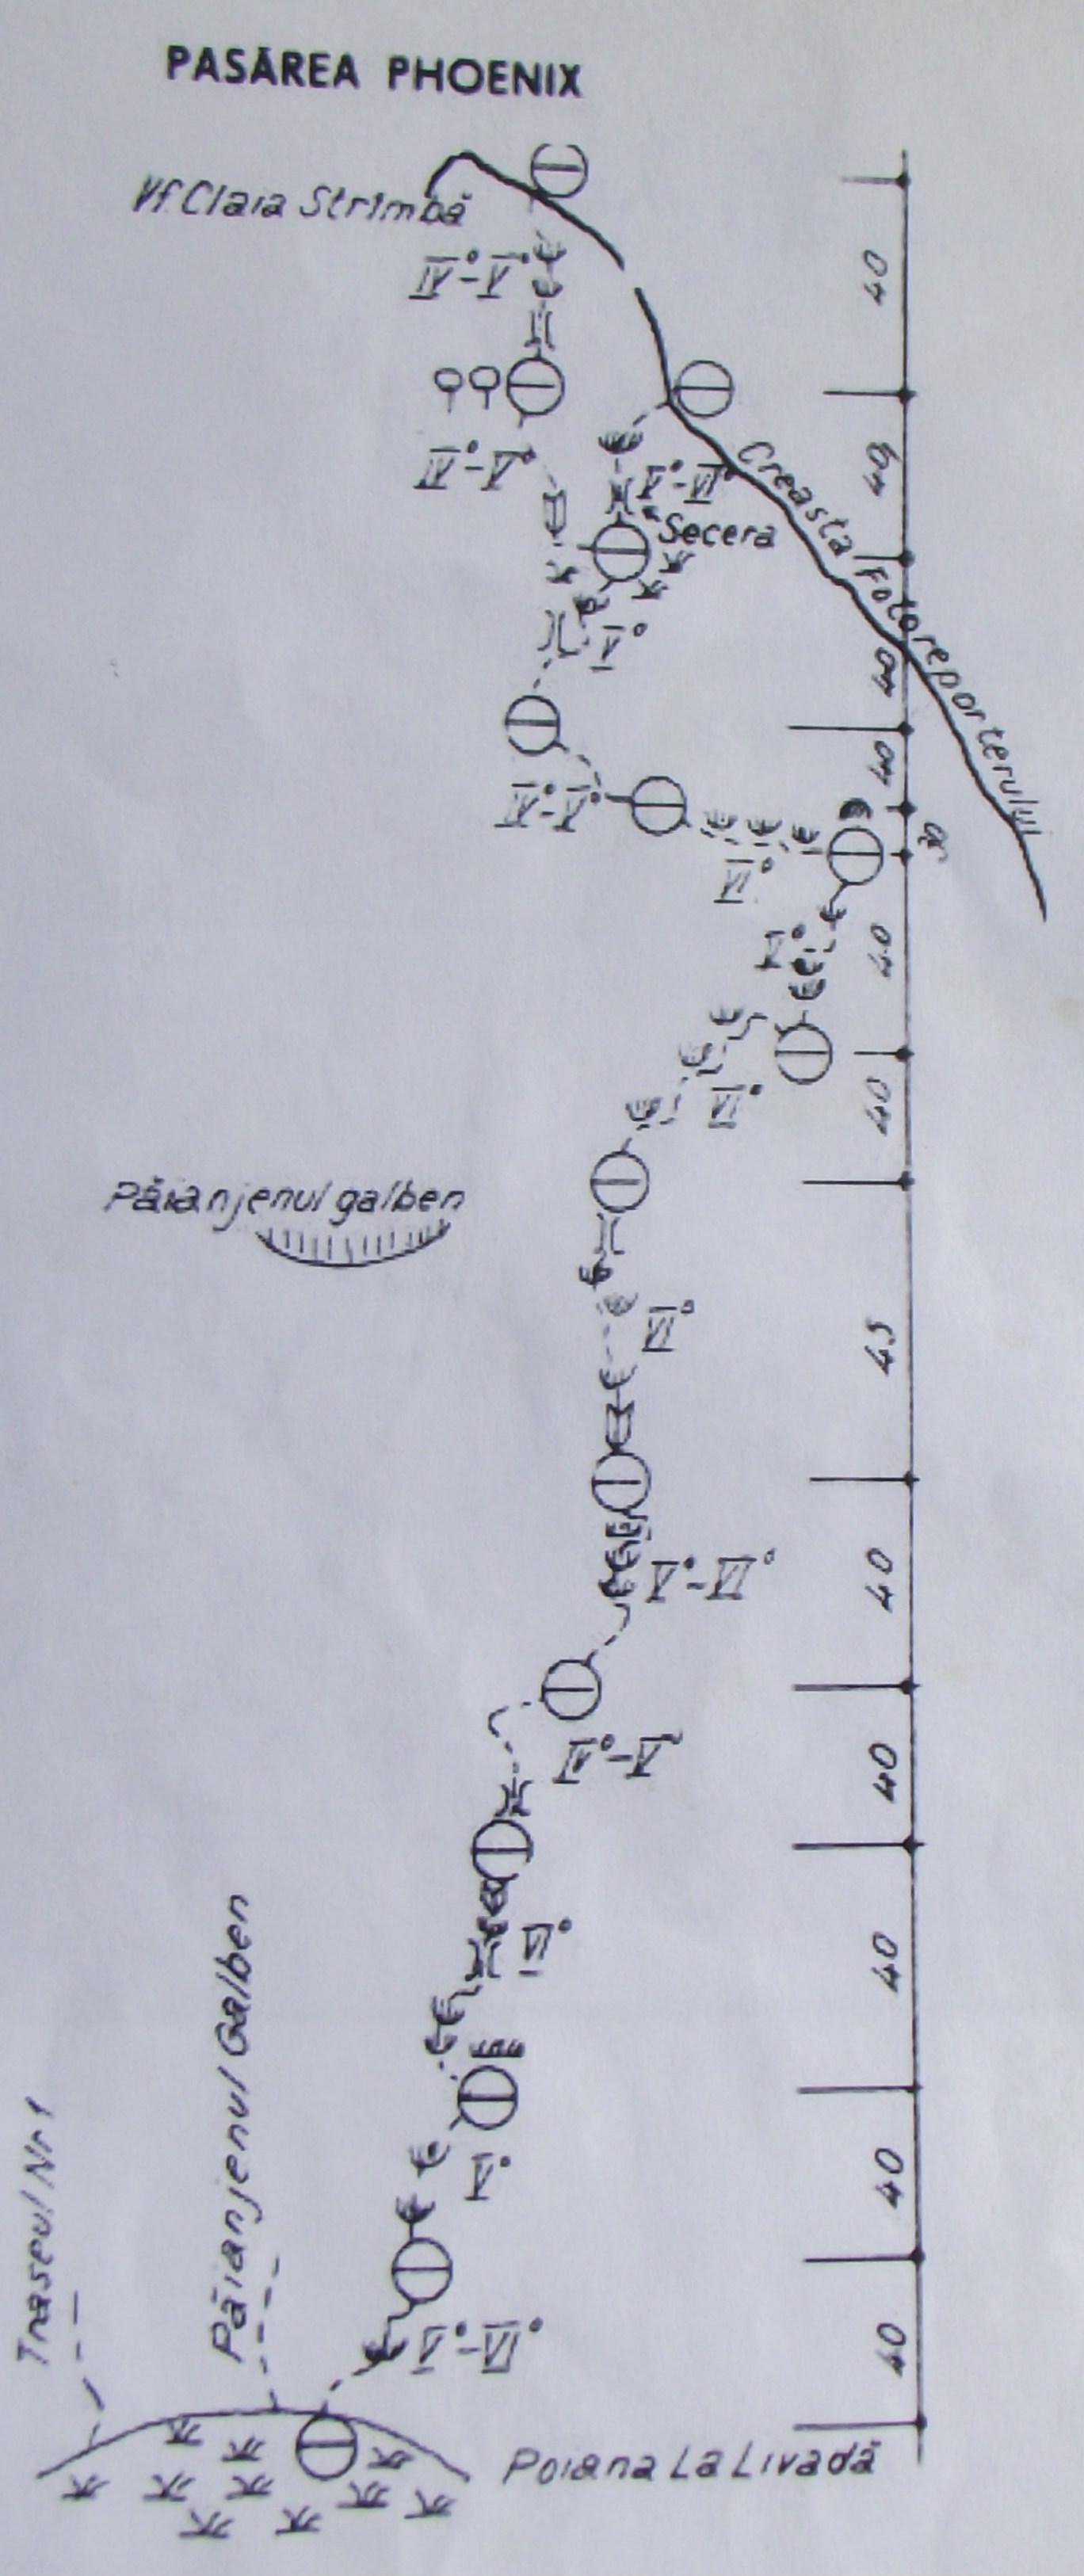 PASĂREA PHOENIX
Vf. Claia Strîmbă
40
IV°-V°
IV°-V°
V°-VI°
Creasta Fotoreporterului
40
Secera
V°
40
IV°-V°
40
VI°
V°
40
VI°
40
Păianjenul galben
VI°
45
V°-VI°
40
IV°-V°
40
VI°
40
Păianjenul Galben
Traseul Nr 1
V°
40
V°-VI°
40
Poiana La Livadă